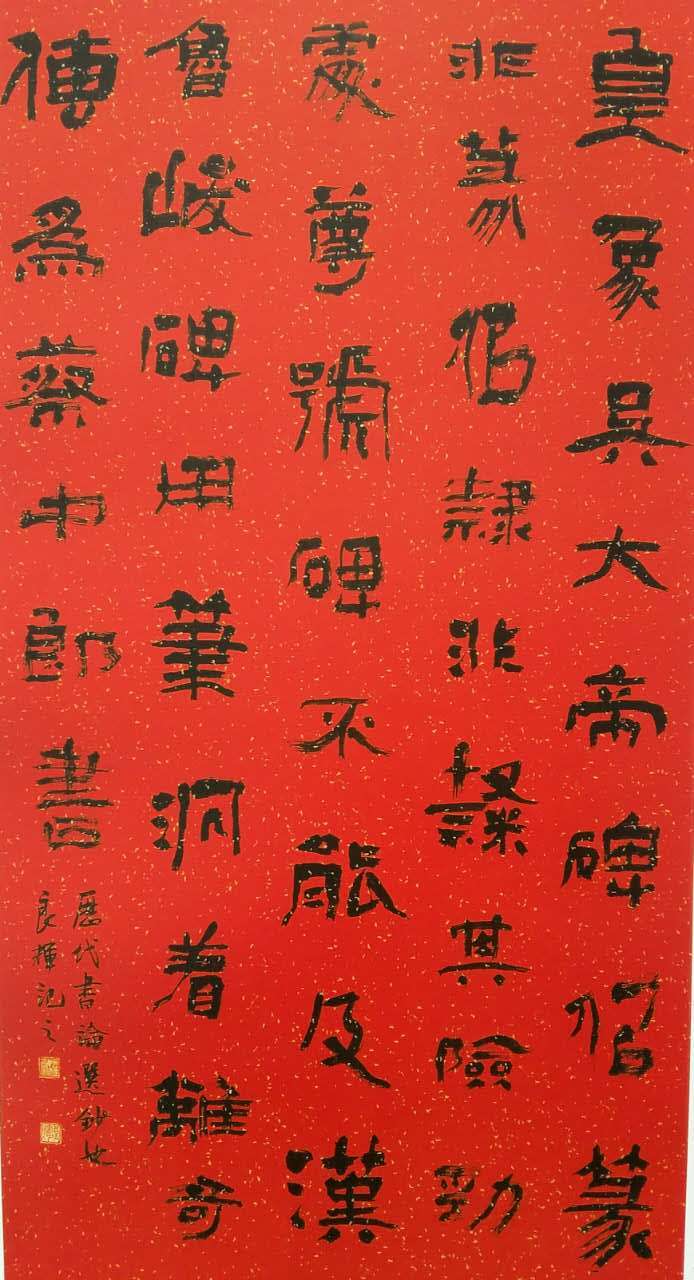 皇象吳大帝碑侣篆
非篆侣隸非隸其險勁
處尊號碑不能及漢
魯峻碑用筆洞着離奇
傳爲蔡中郎書
歷代書論選鈔
良揮記之